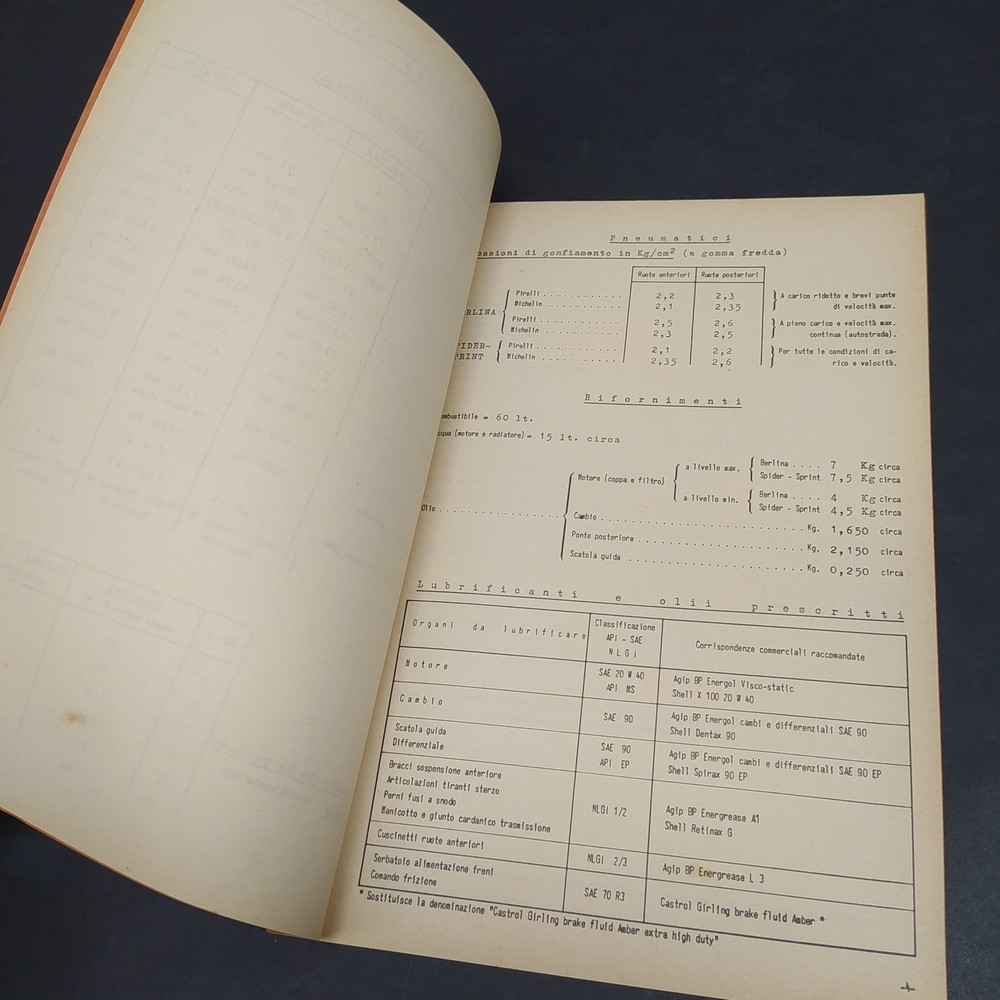 Pneumatici
essioni di gonfiamento in Kg/cm² (a gomma fredda)
Ruote anteriori Ruote posteriori
RLINA
Pirelli ............ 2,2 2,3
Michelin ............ 2,1 2,35
A carico ridotto e brevi punte
di velocità max.
Pirelli ............ 2,5 2,6
Michelin ............ 2,3 2,5
A pieno carico e velocità max.
continua (autostrada).
PIDER-
PRINT
Pirelli ............ 2,1 2,2
Michelin ............ 2,35 2,6
Per tutte le condizioni di ca-
rico e velocità.
Rifornimenti
ombustibile = 60 lt.
cqua (motore e radiatore) = 15 lt. circa
Olio ............
Motore (coppa e filtro)
a livello max.
Berlina .... 7 Kg circa
Spider - Sprint 7,5 Kg circa
a livello min.
Berlina .... 4 Kg circa
Spider - Sprint 4,5 Kg circa
Cambio ............ Kg. 1,650 circa
Ponte posteriore ............ Kg. 2,150 circa
Scatola guida ............ Kg. 0,250 circa
Lubrificanti e olii prescritti
Organi da lubrificare
Classificazione
API - SAE
NLGI
Corrispondenze commerciali raccomandate
Motore
SAE 20 W 40
API MS
Agip BP Energol Visco-static
Shell X 100 20 W 40
Cambio
SAE 90
Agip BP Energol cambi e differenziali SAE 90
Shell Dentax 90
Scatola guida
Differenziale
SAE 90
API EP
Agip BP Energol cambi e differenziali SAE 90 EP
Shell Spirax 90 EP
Bracci sospensione anteriore
Articolazioni tiranti sterzo
Perni fusi a snodo
Manicotto e giunto cardanico trasmissione
NLGI 1/2
Agip BP Energrease A1
Shell Retinax G
Cuscinetti ruote anteriori
NLGI 2/3
Agip BP Energrease L 3
Serbatoio alimentazione freni
Comando frizione
SAE 70 R3
Castrol Girling brake fluid Amber *
* Sostituisce la denominazione "Castrol Girling brake fluid Amber extra high duty"
-4-